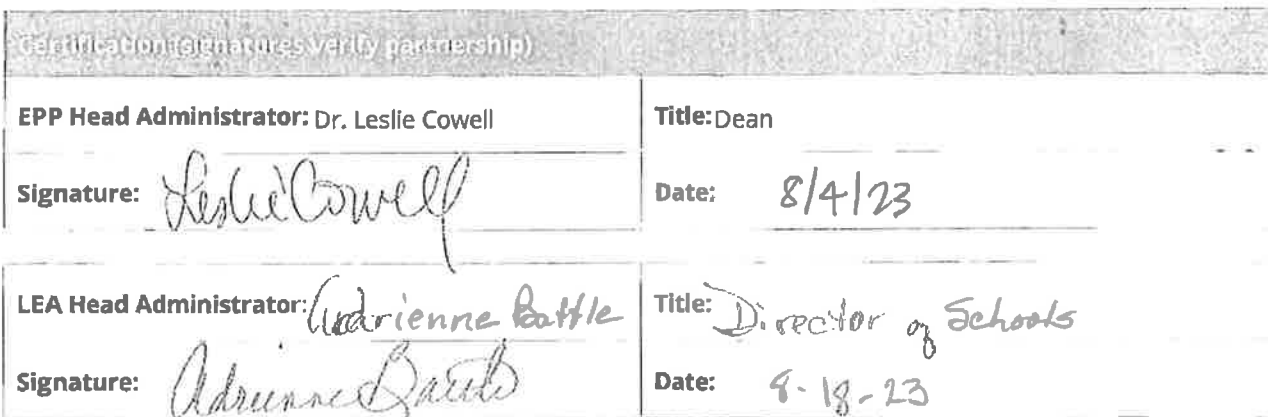 Certification (signatures verify partnership)
EPP Head Administrator: Dr. Leslie Cowell Title: Dean
Signature: Leslie Cowell Date: 8/4/23
LEA Head Administrator: Adrienne Battle Title: Director of Schools
Signature: Adrienne Battle Date: 8-18-23